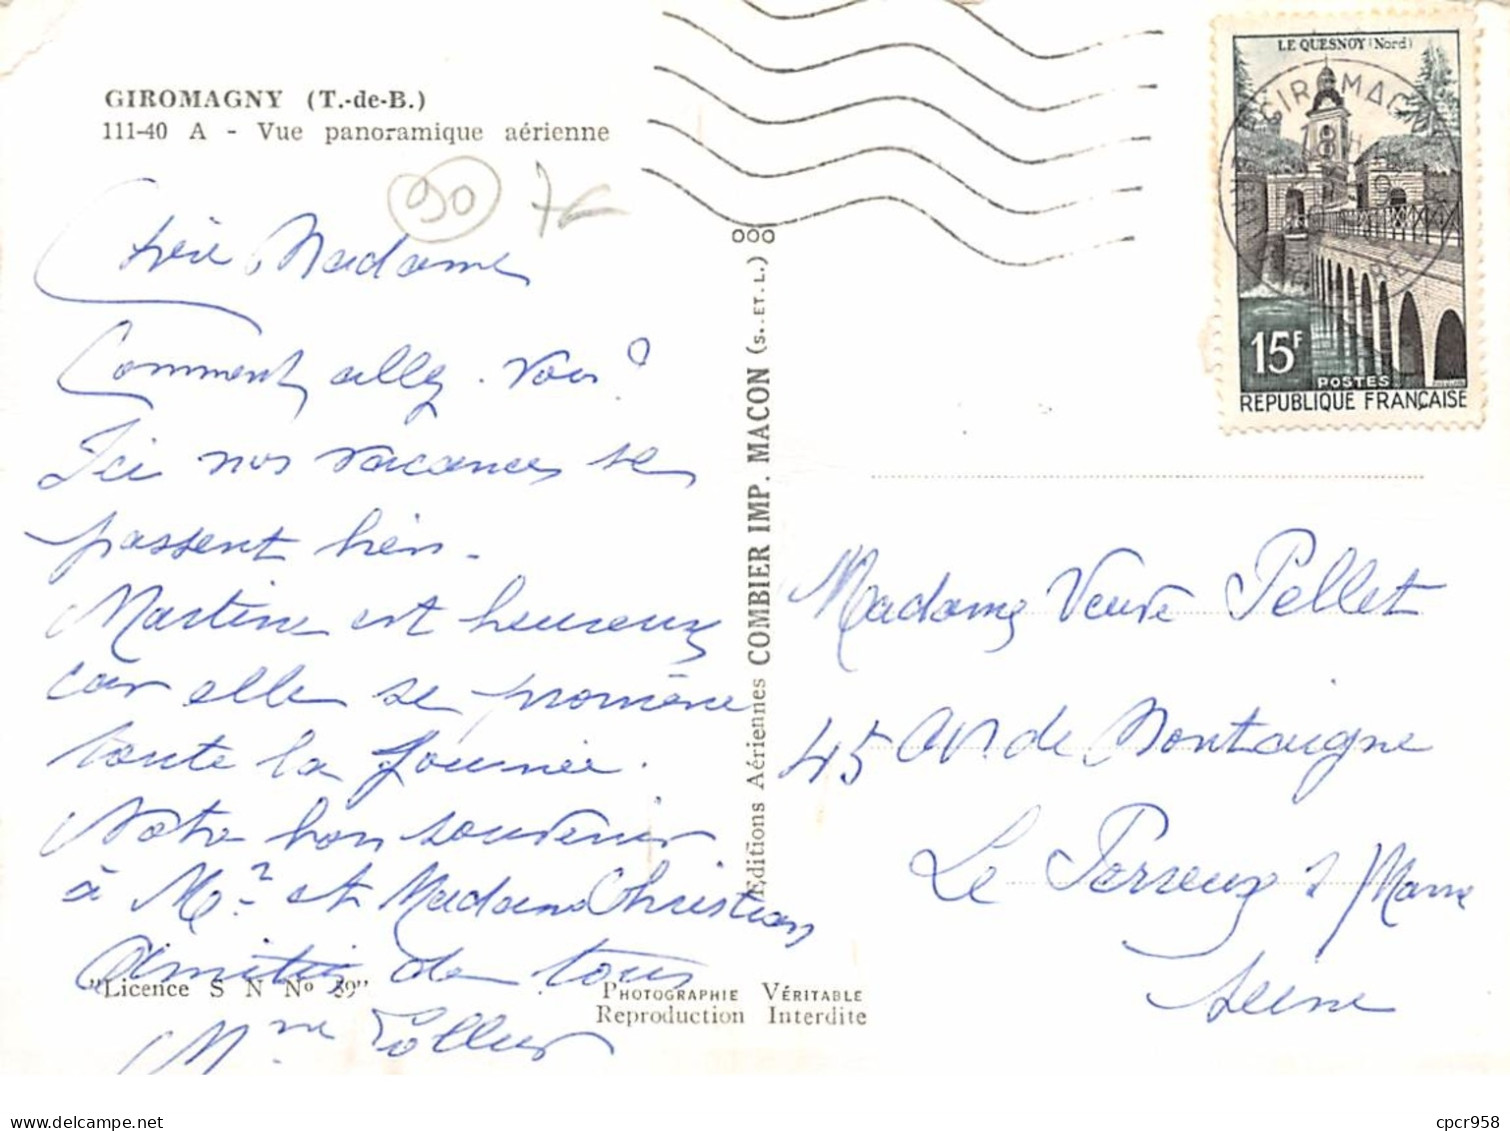 GIROMAGNY (T.-de-B.)
111-40 A - Vue panoramique aérienne
90
Chère Madame
Comment allez-vous?
Ici nos vacances se
passent bien.
Martine est heureuse
car elle se promène
toute la journée.
Notre bon souvenir
à Mr et Madame Christian
Amitiés de tous
Mme
"Licence S N N° 39"
PHOTOGRAPHIE VÉRITABLE
Reproduction Interdite
Editions Aériennes COMBIER IMP. MACON (S. ET L.)
LE QUESNOY (Nord)
GIROMAGNY
15F
POSTES
REPUBLIQUE FRANÇAISE
Madame Veuve Pellet
45 Av. de Montaigne
Le Perreux s/Marne
Seine
cpcr958